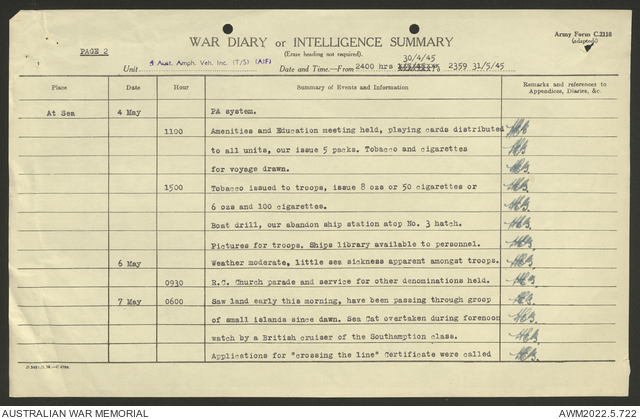 Army Form C.2118
(adapted)
WAR DIARY or INTELLIGENCE SUMMARY
(Erase heading not required).
PAGE 2
30/4/45
Unit Aust. Amph. Veh. Inc. (T/S) (AIF) Date and Time.—From 2400 hrs 2359 31/5/45
Place Date Hour Summary of Events and Information Remarks and references to
Appendices, Diaries, &c.
At Sea 4 May PA system.
1100 Amenities and Education meeting held, playing cards distributed
to all units, our issue 5 packs. Tobacco and cigarettes
for voyage drawn.
1500 Tobacco issued to troops, issue 8 ozs or 50 cigarettes or
6 ozs and 100 cigarettes.
Boat drill, our abandon ship station atop No. 3 hatch.
Pictures for troops. Ships library available to personnel.
6 May Weather moderate, little sea sickness apparent amongst troops.
0930 R.C. Church parade and service for other denominations held.
7 May 0600 Saw land early this morning, have been passing through groop
of small islands since dawn. Sea Cat overtaken during forenoon
watch by a British cruiser of the Southamption class.
Applications for "crossing the line" Certificate were called
AUSTRALIAN WAR MEMORIAL AWM2022.5.722